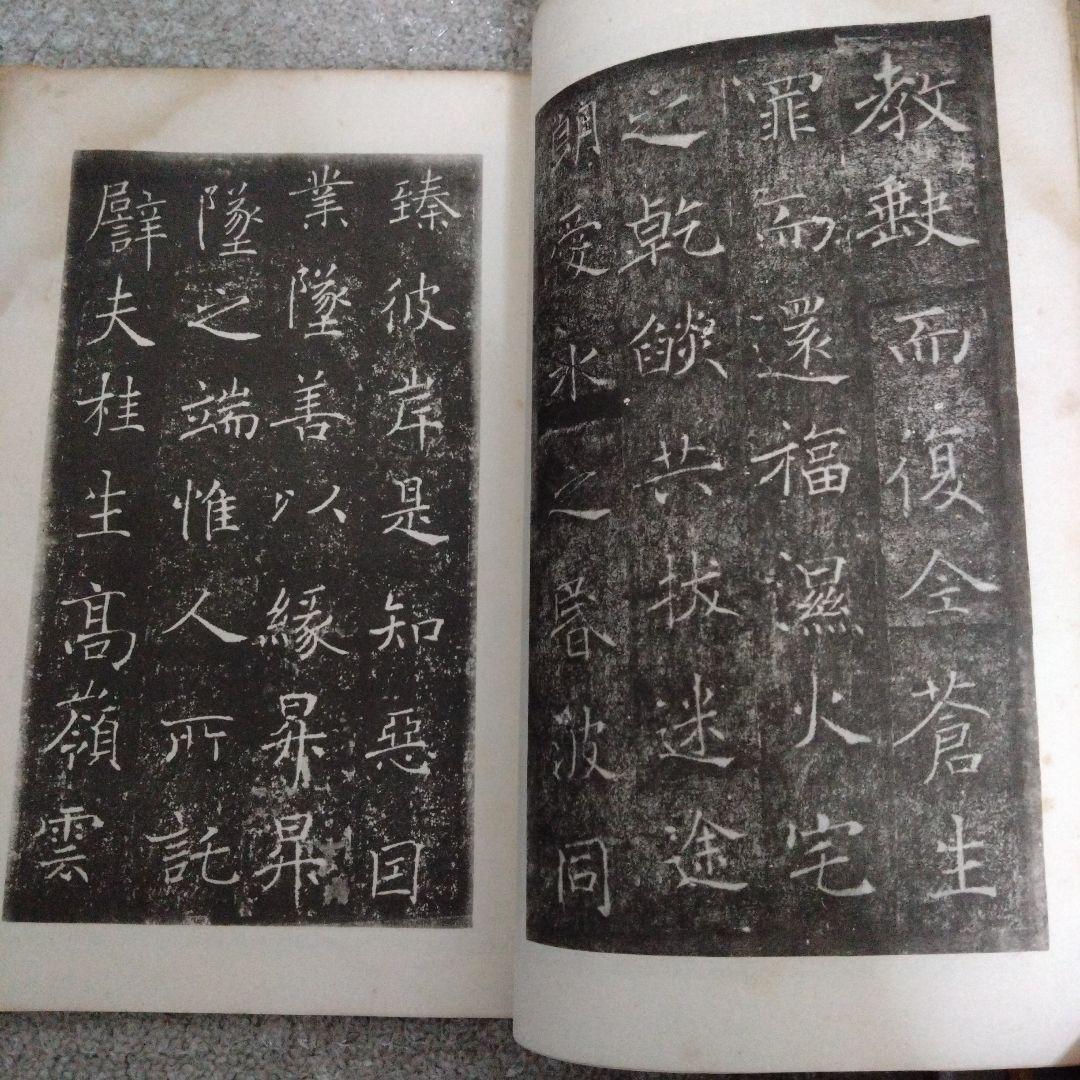 教缺而復全蒼生
罪而還福濕火宅
之乾燄共拔迷途
朗愛水之昬波同
臻彼岸是知惡因
業墜善以緣昇昇
墜之端惟人所託
譬夫桂生高嶺雲